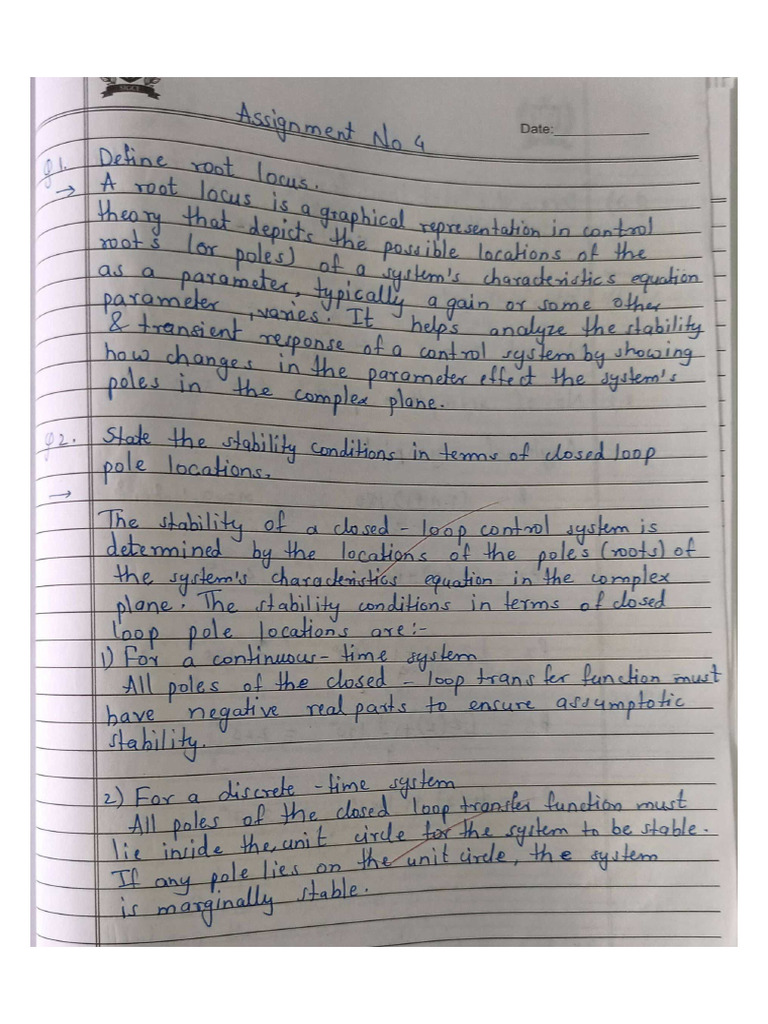 SIGCE
Assignment No 4
Date:
Q1. Define root locus.
→ A root locus is a graphical representation in control
theory that depicts the possible locations of the
roots (or poles) of a system's characteristics equation
as a parameter, typically a gain or some other
parameter, varies. It helps analyze the stability
& transient response of a control system by showing
how changes in the parameter effect the system's
poles in the complex plane.
Q2. State the stability conditions in terms of closed loop
pole locations.
→
The stability of a closed-loop control system is
determined by the locations of the poles (roots) of
the system's characteristics equation in the complex
plane. The stability conditions in terms of closed
loop pole locations are:-
1) For a continuous-time system
All poles of the closed-loop transfer function must
have negative real parts to ensure assumptotic
stability.
2) For a discrete-time system
All poles of the closed loop transfer function must
lie inside the unit circle for the system to be stable.
If any pole lies on the unit circle, the system
is marginally stable.